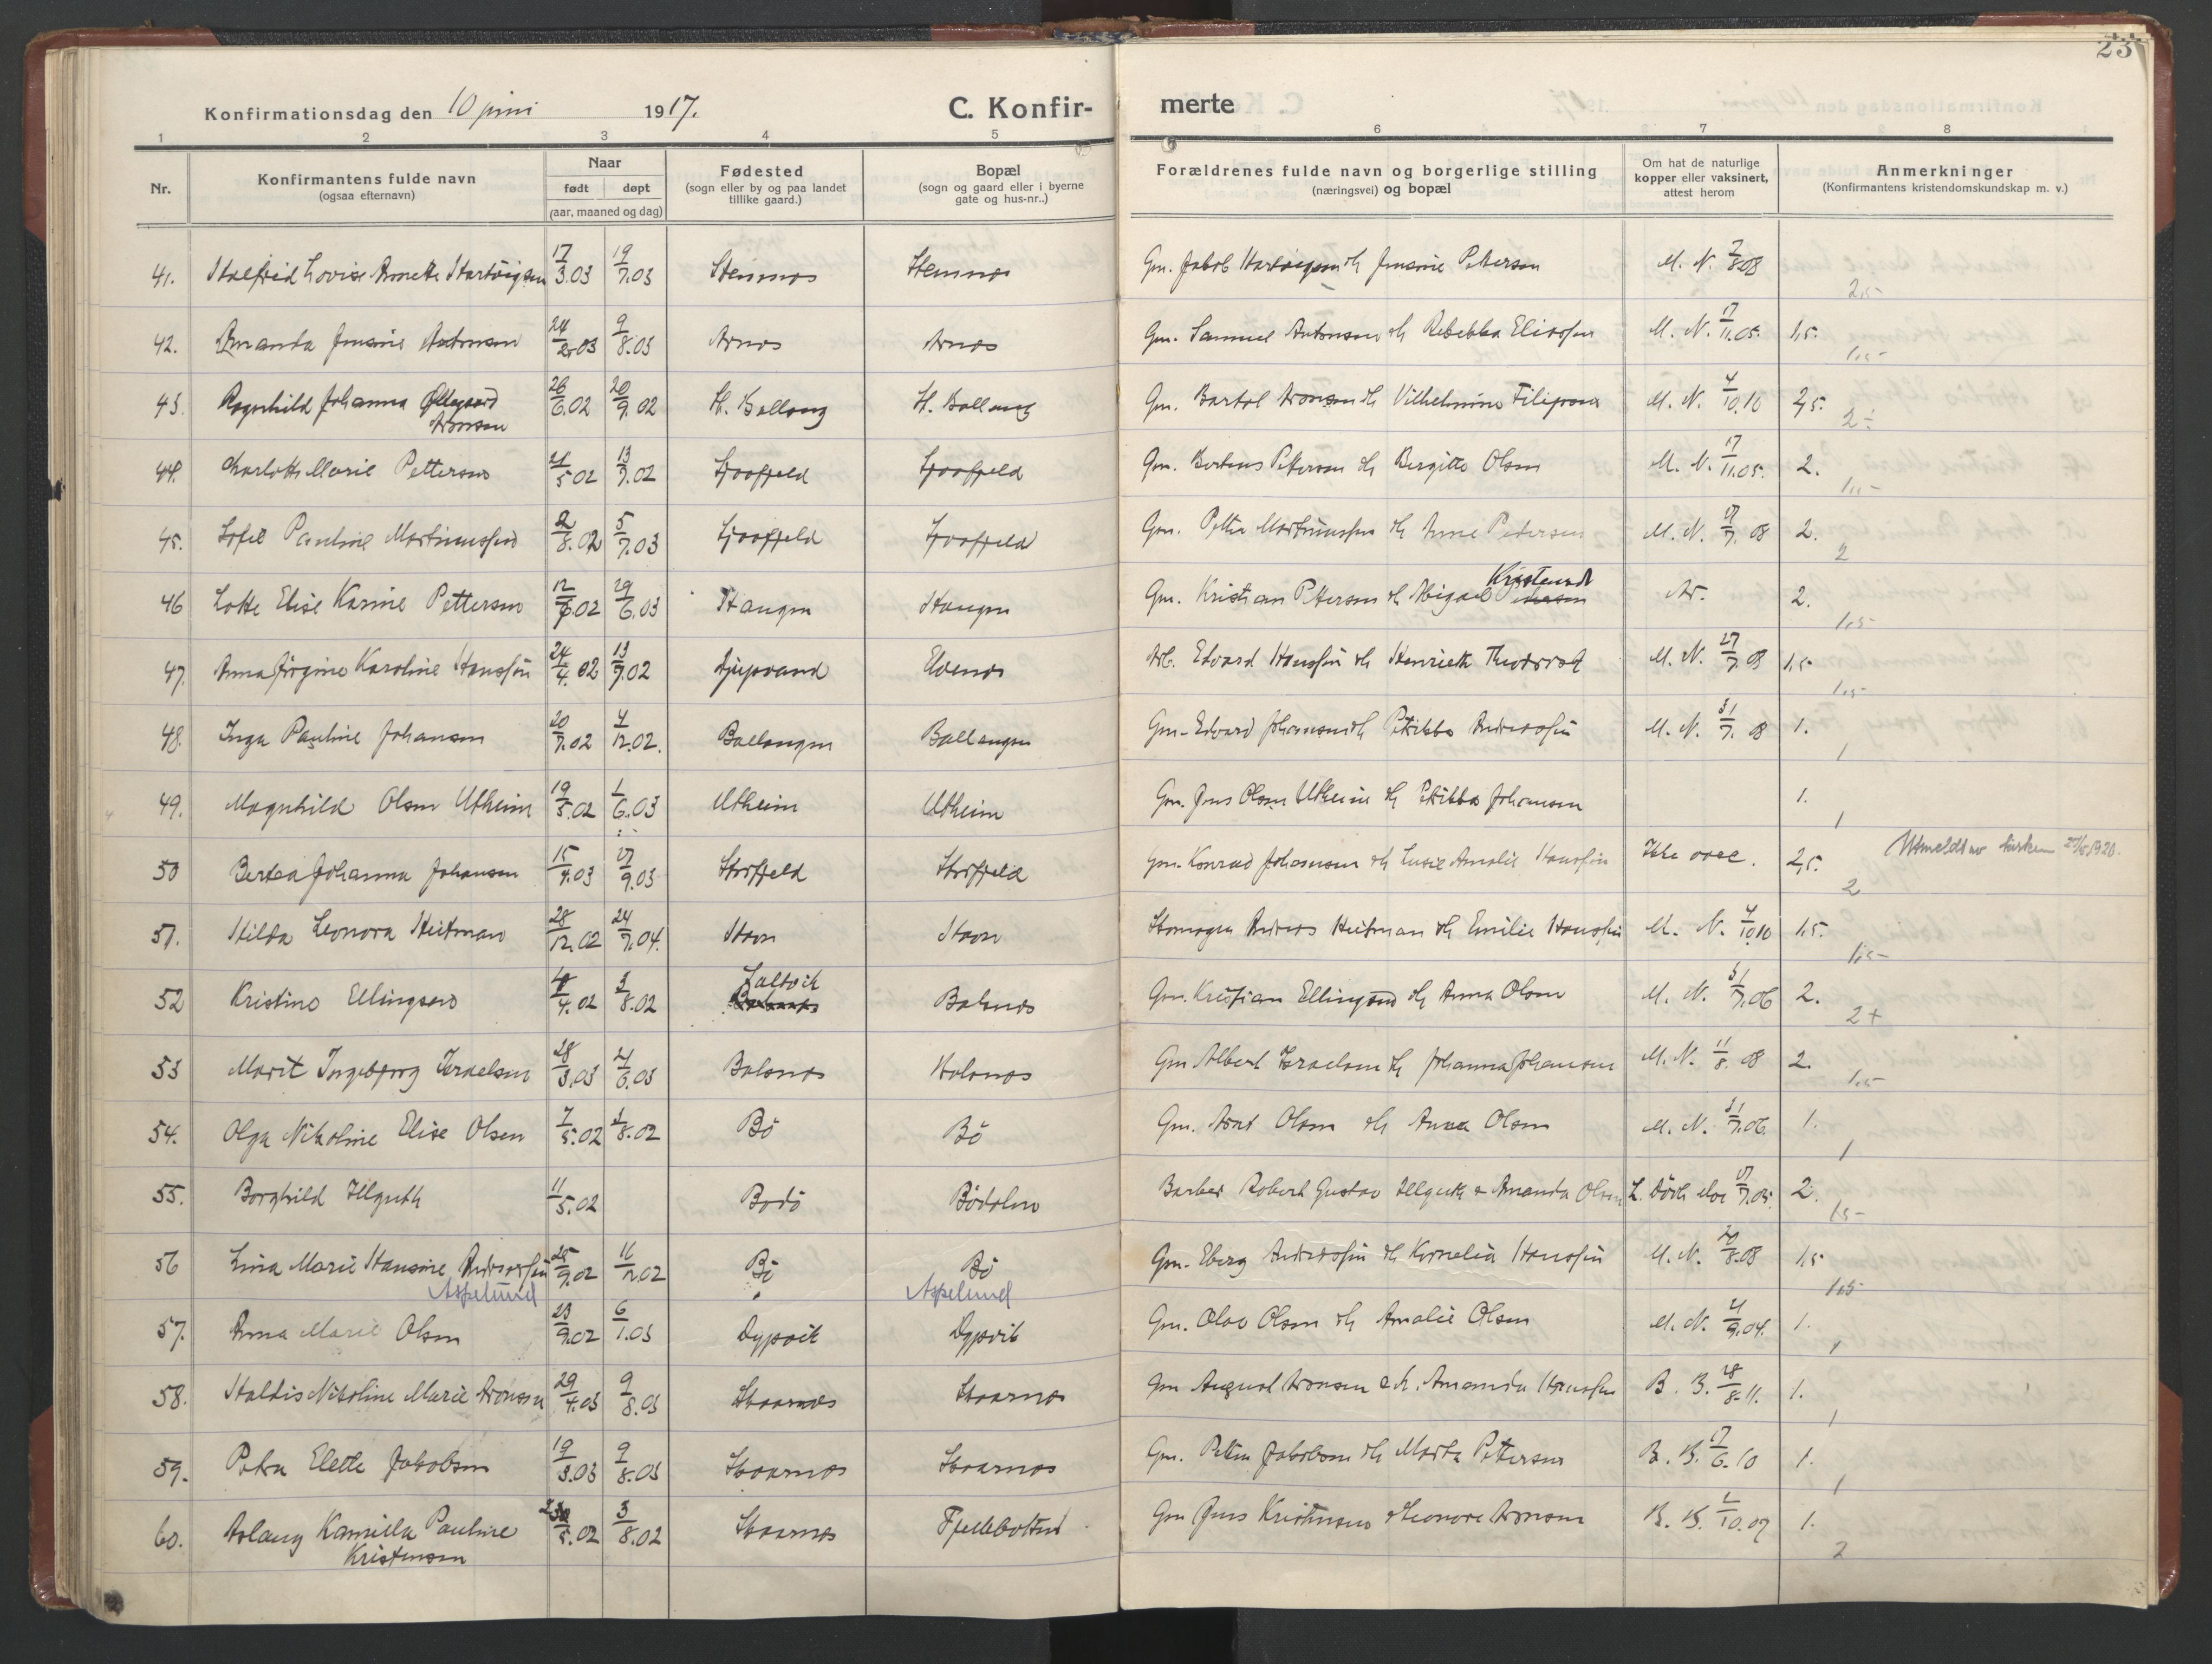 23
Konfirmationsdag den 10 juni 1917. C. Konfir- merte
1 2 3 4 5 6 7 8
Nr. Konfirmantens fulde navn (ogsaa efternavn) Naar født døpt (aar, maaned og dag) Fødested (sogn eller by og paa landet tillike gaard.) Bopæl (sogn og gaard eller i byerne gate og hus-nr..) Forældrenes fulde navn og borgerlige stilling (næringsvei) og bopæl Om hat de naturlige kopper eller vaksinert, attest herom Anmerkninger (Konfirmantens kristendomskundskap m. v.)
41. Lovise Annette Hartvigsen 17/3.03 19/7.03 Stemnes Stemnes Gm. Jakob Hartvigsen oh Jensine Pettersen M. N. 7/8.08 2,5
42. Amanda Jensine Antonsen 24/2.03 9/8.03 Arnes Arnes Gm. Samuel Antonsen oh Rebekka Eliassen M. N. 17/11.05. 1,5. 1,5
43. Ragnhild Johanna Aronsen 26/6.02 20/9.02 H. Ballang H. Ballang Gm. Bartol Aronsen oh Vilhelmine M. N. 4/10.10 2,5. 2÷
44. Charlotte Marie Pettersen 21/5 02 13/7.02 Gm. Pettersen oh Bergitte Olsen M. N. 17/11.05. 2.
45. Sofie Pauline Martinussen 2/8.02 5/7.03 Gm. Petter Martinussen oh Anne Pedersen M. N. 27/7. 08 2. 2
46 Lotte Elise Karine Pettersen 12/7.02 29/6.03 Haugen Haugen Gm. Kristian Pettersen oh Abigael Kristensdt Ar. 2. 1,5
47. Anna Jørgine Karoline Hanssen 24/4. 02 13/7.02 Djupvand Eidenes Arb. Edvard Hanssen oh Henriette M. N. 27/7. 08 1,5 1,5
48. Inga Pauline Johansen 20/7.02 4/12.02. Ballangen Ballangen Gm. Edvard Johansen oh Petrikka Anderssen M. N. 31/7. 08 1. 1
49. Magnhild Olsen Utheim 19/5.02 1/6.03 Utheim Utheim Gm. Jens Olsen Utheim oh Petrikka Johansen 1. 1
50 Bertea Johanna Johansen 15/4.03 27/9.03 Storfjeld Storfjeld Gm. Konrad Johansen oh Lusie Amalie Hanssen Ikke vacc. 2,5. 2 Utmeldt av kirken 1920.
51. Hilda Leonora Heitman 28/12.02 24/7.04. Havn Havn Anders Heitman oh Emilie Hanssen M. N. 4/10.10 1,5. 1,5
52 Kristine Ellingsen 4/4.02 3/8.02 Saltvik Balsnes Gm. Kristian Ellingsen oh Anna Olsen M. N. 31/7.06 2. 2+
53 Marit Ingebjørg Israelsen 28/3.03 21/6.03 Balsnes Balsnes Gm. Albert Israelsen oh Johanna Johansen M. N. 11/8. 08 2. 1,5
54. Olga Nikoline Elise Olsen 7/5.02 3/8.02 Bö Bö Gm. Olsen oh Anna Olsen M. N. 31/7.06. 1. 1
55. Borghild Illguth 11/5.02 Bodö Bödalen Barber Robert Gustav Illguth & Amanda Olsen 27/7.05. 2. 1,5
56 Lina Marie Hansine Anderssen 25/9.02 16/12.02 Bö Bö Gm. Eberg Anderssen oh Kornelia Hanssen M. N. 20/8.08 1,5 1,5
Aspelund Aspelund
57. Anna Marie Olsen 23/9.02 6/1.03 Dypvik Dypvik Gm. Olav Olsen oh Amalie Olsen M. N. 21/9.04. 1. 1
58. Haldis Nikoline Marie Aronsen 29/4.03 9/8.03 Skaarnes Skaarnes Gm August Aronsen oh. Amanda Hanssen B. B. 28/8.11. 1. 1
59. Petra Elette Jakobsen 19/3.03 9/8.03 Skaarnes Skaarnes Gm. Petter Jakobsen oh Marta Pettersen B. B. 17/6.10 1. 1
60. Aslaug Kamilla Pauline Kristensen 23/5.02 3/8.02 Skaarnes Fjellebotten Gm Jens Kristensen oh Leonore Aronsen B. B. 1/10.07 1. 2